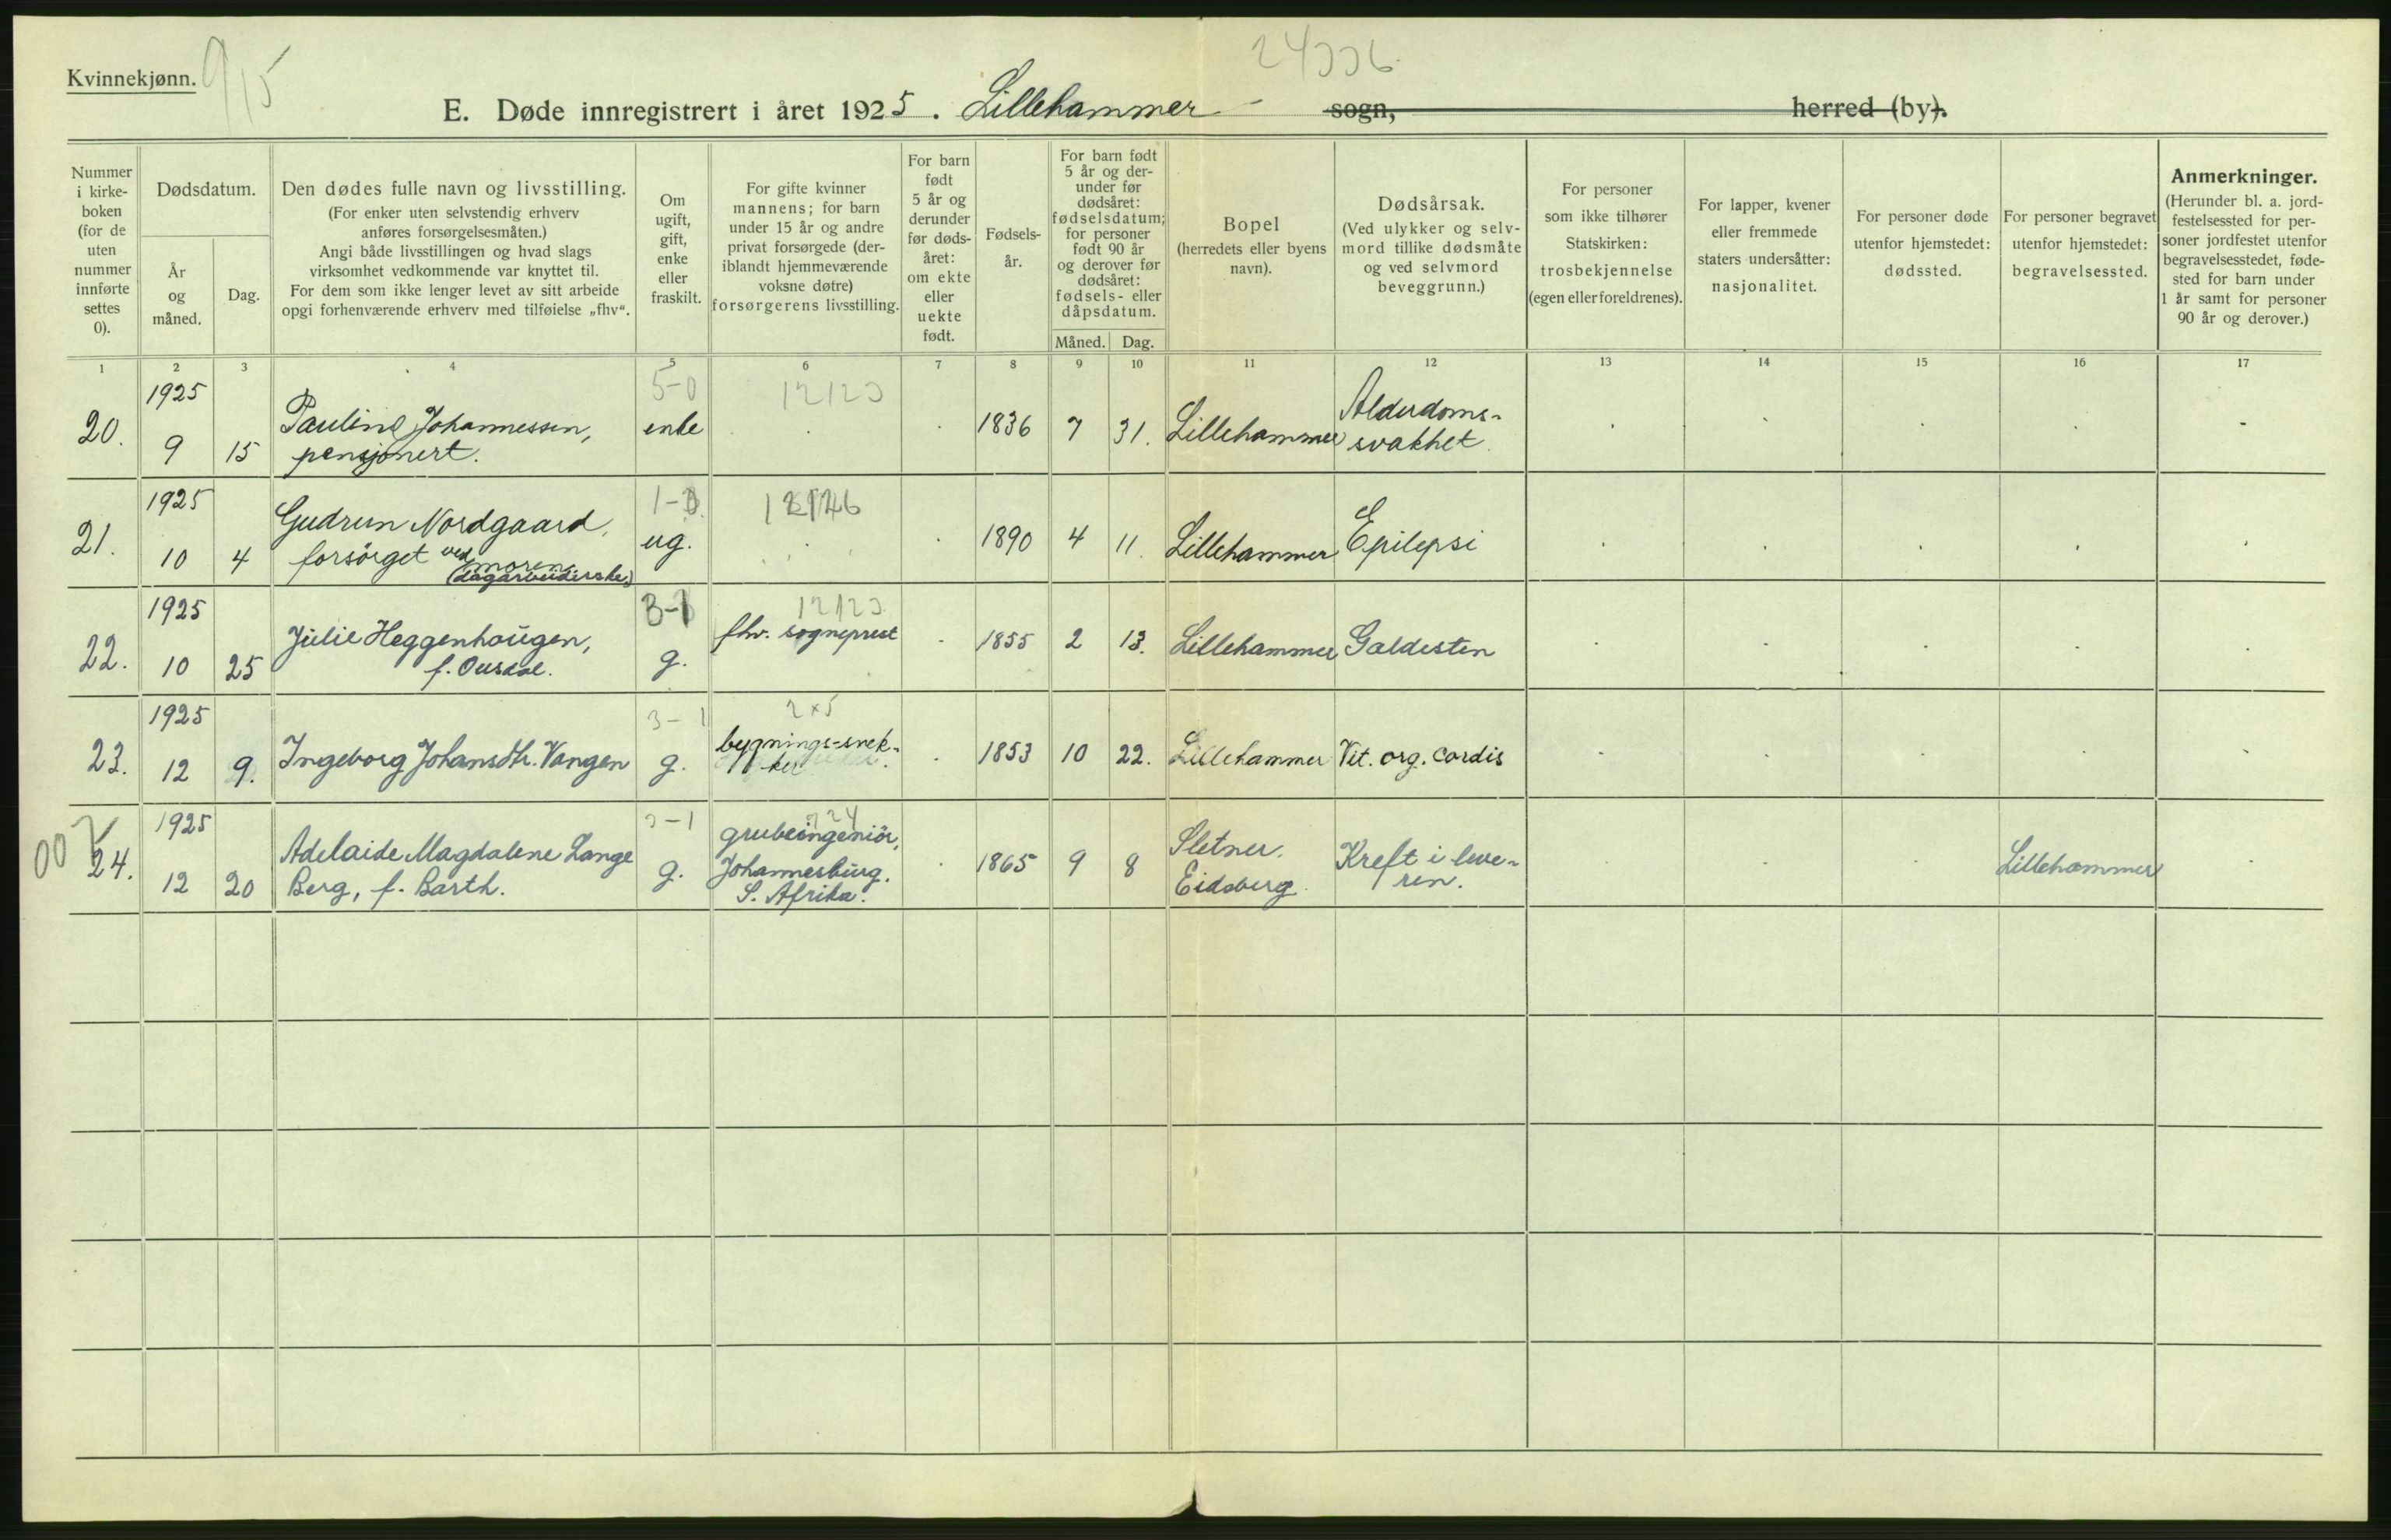 Kvinnekjønn.
9/15
24336
E. Døde innregistrert i året 1925. Lillehammer sogn, herred (by).
Nummer
i kirke-
boken
(for de
uten
nummer
innførte
settes
0).
Dødsdatum.
År
og
måned.
Dag.
Den dødes fulle navn og livsstilling.
(For enker uten selvstendig erhverv
anføres forsørgelsesmåten.)
Angi både livsstillingen og hvad slags
virksomhet vedkommende var knyttet til.
For dem som ikke lenger levet av sitt arbeide
opgi forhenværende erhverv med tilføielse „fhv“.
Om
ugift,
gift,
enke
eller
fraskilt.
For gifte kvinner
mannens; for barn
under 15 år og andre
privat forsørgede (der-
iblandt hjemmeværende
voksne døtre)
forsørgerens livsstilling.
For barn
født
5 år og
derunder
før døds-
året:
om ekte
eller
uekte
født.
Fødsels-
år.
For barn født
5 år og der-
under før
dødsåret:
fødselsdatum;
for personer
født 90 år
og derover før
dødsåret:
fødsels- eller
dåpsdatum.
Måned. Dag.
Bopel
(herredets eller byens
navn).
Dødsårsak.
(Ved ulykker og selv-
mord tillike dødsmåte
og ved selvmord
beveggrunn.)
For personer
som ikke tilhører
Statskirken:
trosbekjennelse
(egen eller foreldrenes).
For lapper, kvener
eller fremmede
staters undersåtter:
nasjonalitet.
For personer døde
utenfor hjemstedet:
dødssted.
For personer begravet
utenfor hjemstedet:
begravelsessted.
Anmerkninger.
(Herunder bl. a. jord-
festelsessted for per-
soner jordfestet utenfor
begravelsesstedet, føde-
sted for barn under
1 år samt for personer
90 år og derover.)
1 2 3 4 5 6 7 8 9 10 11 12 13 14 15 16 17
1925 5-0 12123
20. 9 15 Pauline Johannessen, enke 1836 7 31. Lillehammer Alderdoms-
pensjonert. svakhet.
1925 1-
21. 10 4 Gudrun Nordgaard, ug. 1890 4 11. Lillehammer Epilepsi
forsörget ved moren
(dagarbeiderske)
1925 3-1 12123
22. 10 25 Julie Heggenhougen, g. fhv. sogneprest 1855 2 13. Lillehammer Galdesten
f. Ousdal.
1925 3-1 2x5
23. 12 9. Ingeborg Johansdtr. Vangen g. bygnings-snek- 1853 10 22. Lillehammer Vit. org. cordis
ker
1925 3-1 224
00 24. 12 20 Adelaide Magdalene Lange g. grubeingeniör, 1865 9 8 Sletner. Kreft i leve- Lillehammer
Berg, f. Barth. Johannesburg. Eidsberg. ren.
S. Afrika.